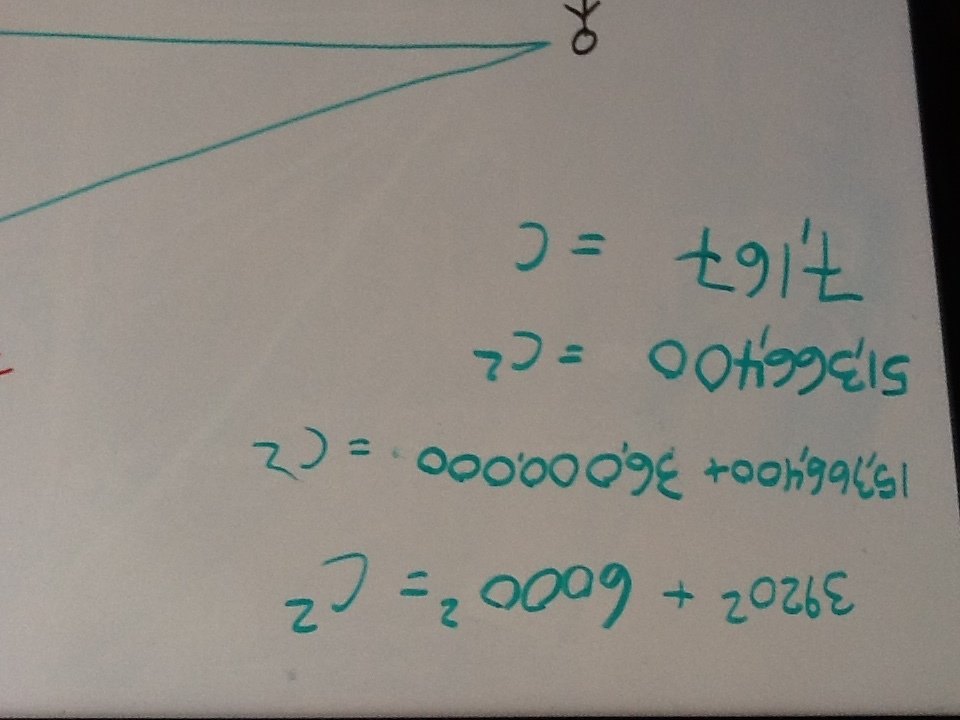 3920² + 6000² = C²
15,366,400 + 36,000,000 = C²
51,366,400 = C²
7,167 = C